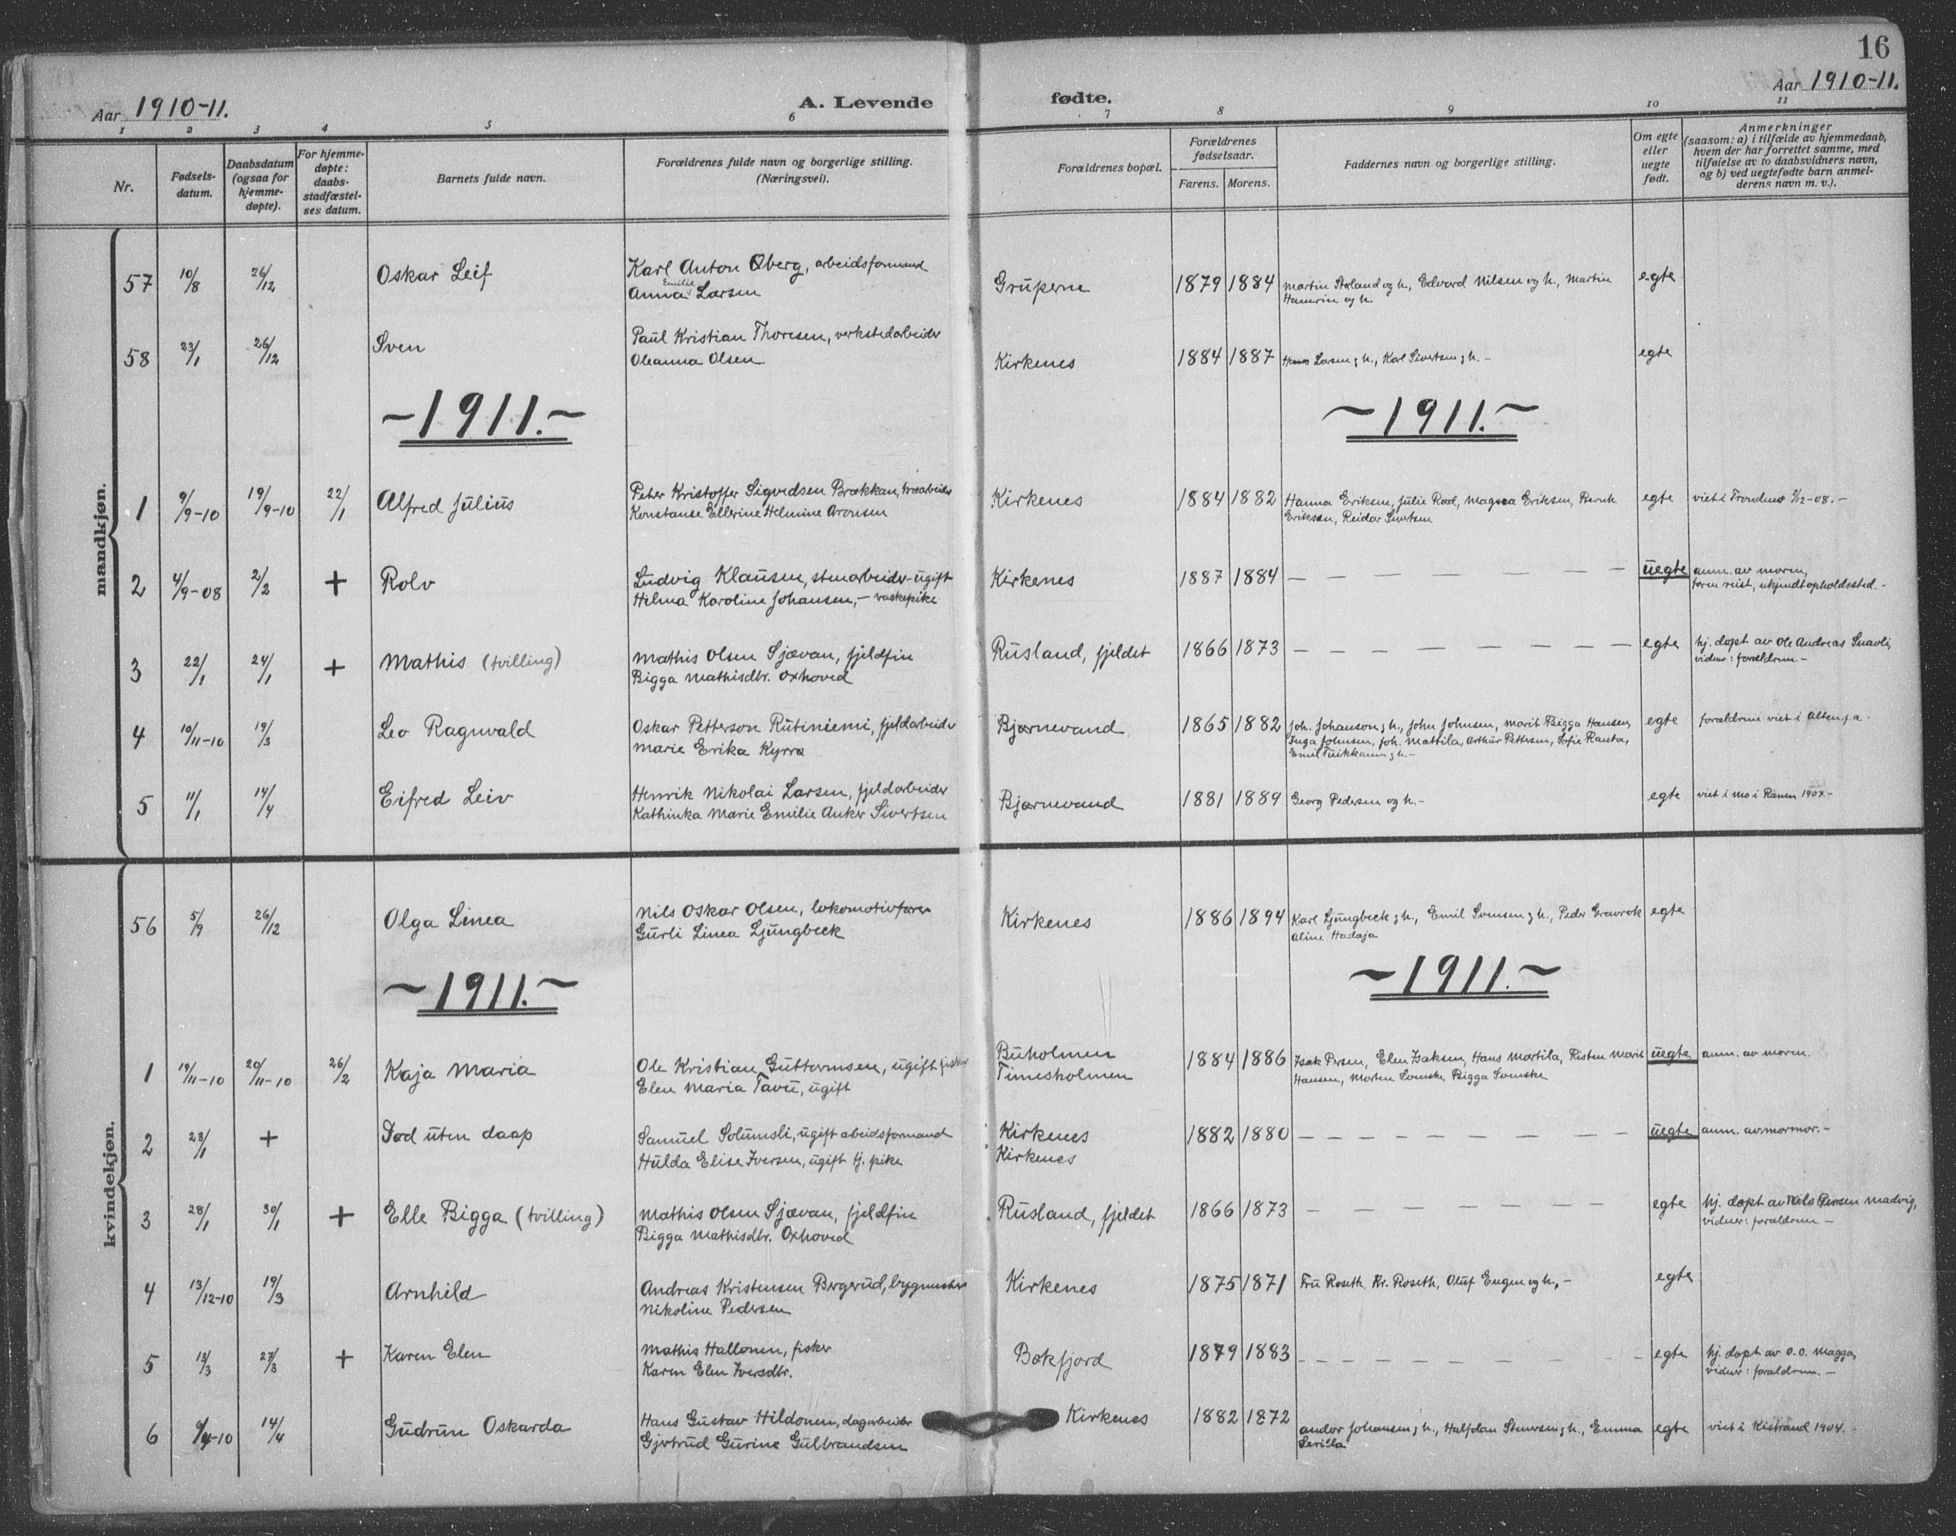 16
Aar 1910-11. A. Levende fødte. Aar 1910-11.
1 2 3 4 5 6 7 8 9 10 11
Nr.
Fødsels-
datum.
Daabsdatum
(ogsaa for
hjemme-
døpte).
For hjemme-
døpte:
daabs-
stadfæstel-
ses datum.
Barnets fulde navn.
Forældrenes fulde navn og borgerlige stilling.
(Næringsvei).
Forældrenes bopæl.
Forældrenes
fødselsaar.
Farens. Morens.
Faddernes navn og borgerlige stilling.
Om egte
eller
uegte
født.
Anmerkninger
(saasom: a) i tilfælde av hjemmedaab,
hvem der har forrettet samme, med
tilføielse av to daabsvidners navn,
og b) ved uegtefødte barn anmel-
derens navn m. v.).
mandkjøn.
57 10/8 26/12 Oskar Leif Karl Anton Øberg, arbeidsformand Grüperne 1879 1884 Martin og h., Edvard Nilsen og h., Martin egte
Emilie
Anna Larsen Hamrin og h.
58 23/1 26/12 Sven Paul Kristian Thoresen, verkstedarbeider Kirkenes 1884 1887 Hans Larsen & h., Karl Sivertsen & h. – egte
Oleanna Olsen
~1911.~ ~1911.~
1 9/9-10 19/9-10 22/1 Alfred Julius Peter Kristoffer Sigvedsen Brækkan, Kirkenes 1884 1882 Hanna Eriksen, Julie Rod, Magna Eriksen, Bernh. egte viet i Trondenes 2/12-08. –
Konstanse Ellerine Helmine Aronsen Eriksen, Reidar Sivertsen
2 4/9-08 2/2 + Rolv Ludvig Klausen, stenarbeider – ugift Kirkenes 1887 1884 – – – – – – – – uegte anm. av moren,
Hilma Karoline Johansen, – vaskepike faren reist, ukjendt opholdssted. –
3 22/1 24/1 + Mathis (tvilling) Mathis Olsen Sjævan, fjeldfin Rusland, fjeldet 1866 1873 – – – – – – – – egte hj. døpt av Ole Andreas Snavli,
Bigga Mathisdtr. Oxhoved vidner: forældrene –
4 10/11-10 19/3 Leo Ragnvald Oskar Petterson Rutiniemi, fjeldarbeider Bjørnevand, 1865 1882 Joh. Johanson & h., John Johnsen, Marit Bigga Hansen, egte forældrene viet i Alten p.a. –
Marie Erika Kyrrø Inga Johnsen, Joh. Mattila, Arthur Pettersen, Sofie Ranta,
Emil & h. –
5 11/1 14/4 Eifred Leiv Henrik Nikolai Larsen, fjeldarbeider Bjørnevand 1881 1889 Georg Pedersen og h. – egte viet i Mo i Ranen 1907. –
Kathinka Marie Emilie Anker Sivertsen
kvindekjøn.
56 5/9 26/12 Olga Linea Nils Oskar Olsen, lokomotivfører Kirkenes 1886 1894 Karl Ljungbeck & h., Emil Svensen & h., Peder egte
Gurli Linea Ljungbeck Aline Hadaja
~1911.~ ~1911.~
1 19/11-10 20/11-10 26/2 Kaja Maria Ole Kristian Guttormsen, ugift fisker Buholmen 1884 1886 Isak Persen, Elen Isaksen, Hans Martila, Risten Marit uegte anm. av moren.
Elen Maria Tavu, ugift Timesholmen Hansen, Morten Svenske, Bigga Svenske
2 23/1 + Død uten daap Samuel Solumsli, ugift abeidsformand Kirkenes 1882 1880 – – – – – – – – uegte anm. av mormor. –
Hulda Elise Iversen, ugift tj. pike Kirkenes
3 28/1 30/1 + Elle Bigga (tvilling) Mathis Olsen Sjævan, fjeldfin Rusland, fjeldet 1866 1873 – – – – – – – – egte hj. døpt av Nils Persen Madvig,
Bigga Mathisdtr. Oxhoved vidner: forældrene –
4 13/12-10 19/3 Arnhild Andreas Kristensen Bergerud, bygmester Kirkenes 1875 1871 Fru Roseth, Kr. Roseth, Oluf Engen og h., – egte
Nikoline Pedersen
5 13/3 27/3 + Karen Elen Mathis Hallonen, fisker Bøkfjord 1879 1883 – – – – – – – – egte hj. døpt av O.O. Magga,
Karen Elen Iversdtr. vidner: forældrene. –
6 9/4-10 14/4 Gudrun Oskarda Hans Gustav Hildonen, dagarbeider Kirkenes 1882 1872 Andor Johansen & h., Halfdan & h., Emma egte viet i Kistrand 1904. –
Gjertrud Gurine Gulbrandsen Serilla